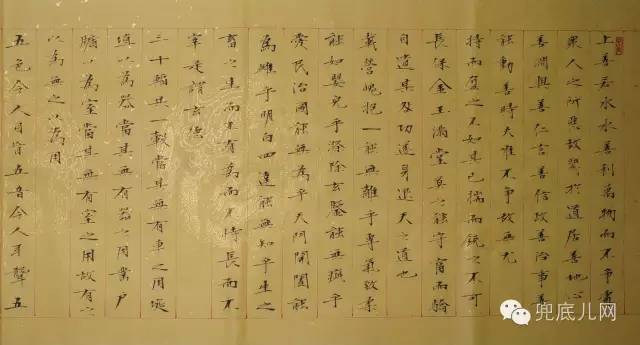 上善若水水善利萬物而不爭處
眾人之所惡故幾於道居善地心
善淵與善仁言善信政善治事善
能動善時夫唯不爭故無尤
持而盈之不如其已揣而銳之不可
長保金玉滿堂莫之能守富而驕
自遺其咎功遂身退天之道也
載營魄抱一能無離乎專氣致柔
能如嬰兒乎滌除玄鑒能無疵乎
愛民治國能無為乎天門開闔能
為雌乎明白四達能無知乎生之
畜之生而不有為而不恃長而不
宰是謂玄德
三十輻共一轂當其無有車之用埏
埴以為器當其無有器之用鑿戶
牖以為室當其無有室之用故有之
以為無之以為用
五色令人目盲五音令人耳聾五
兜底儿网